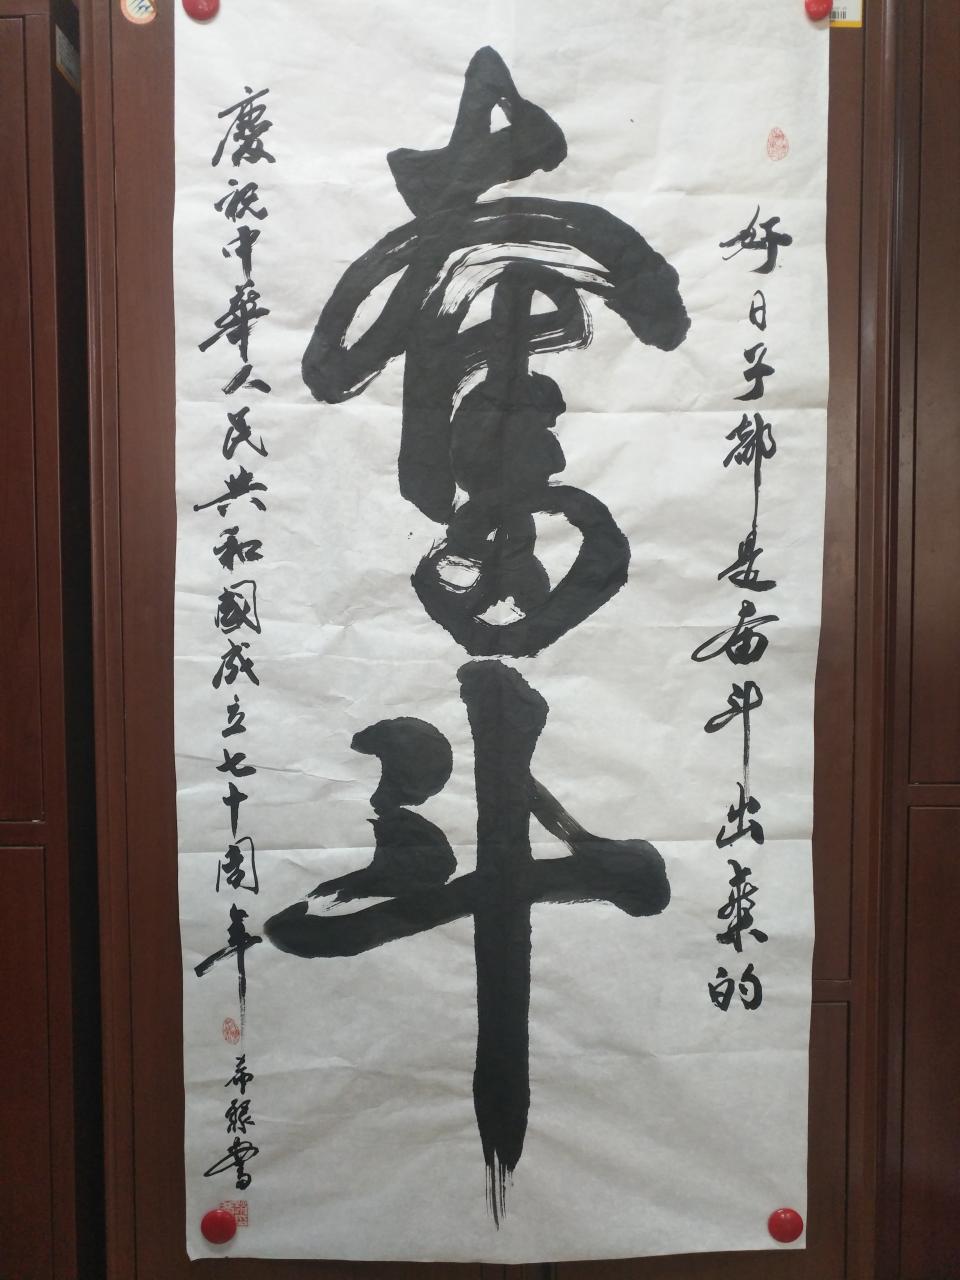 好日子都是奋斗出来的
奮斗
慶祝中華人民共和國成立七十周年
希騄書